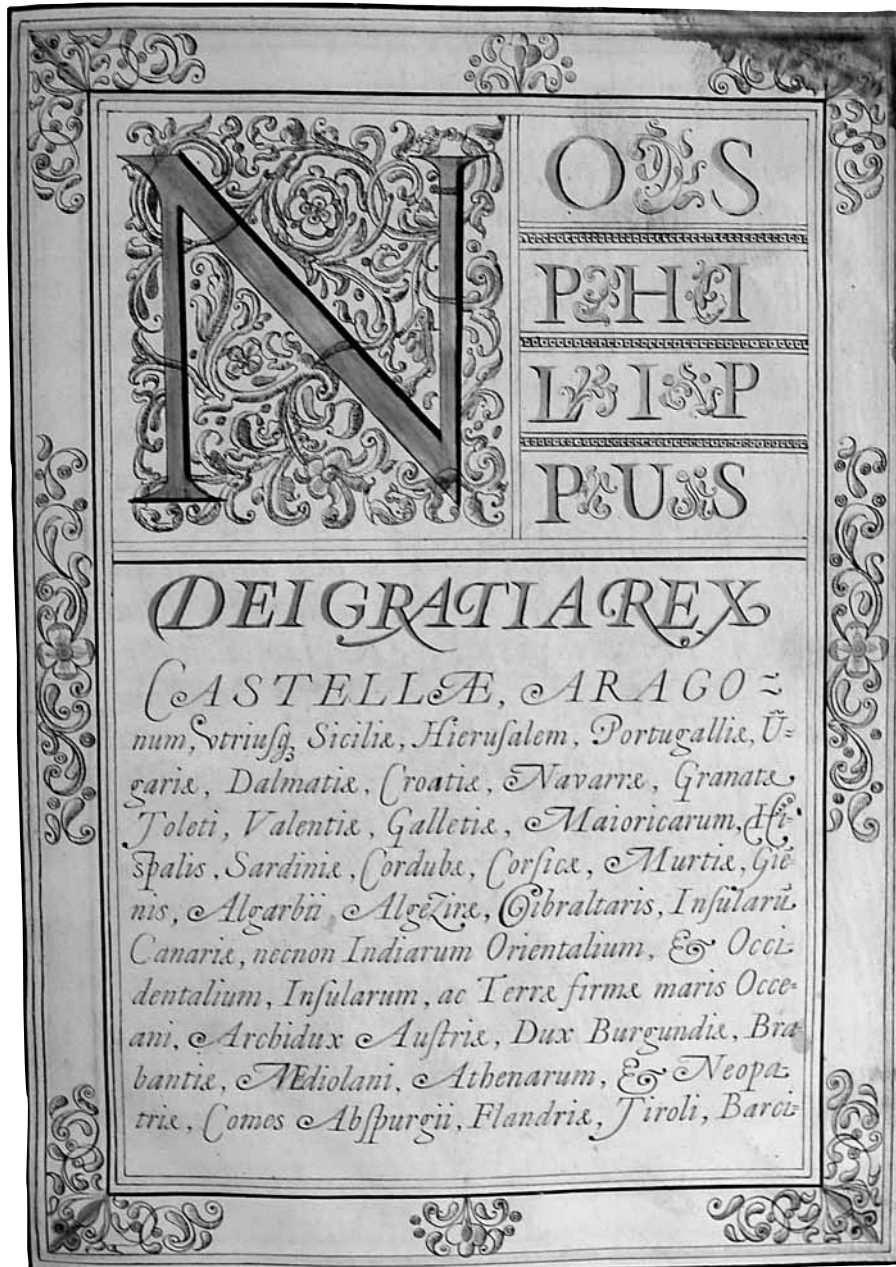 NOS
PHI
LIP
PUS
DEI GRATIA REX
CASTELLÆ, ARAGO=
num, Vtriusqȝ Siciliæ, Hieruſalem, Portugalliæ, Ũ=
gariæ, Dalmatiæ, Croatiæ, Navarræ, Granatæ
Toleti, Valentiæ, Galletiæ, Maioricarum, Hi=
spalis, Sardiniæ, Cordubæ, Corſicæ, Murtiæ, Giē
nis, Algarbii, Algēziræ, Gibraltaris, Inſularũ
Canariæ, necnon Indiarum Orientalium, & Occi=
dentalium, Inſularum, ac Terræ firmæ maris Occe=
ani, Archidux Auſtriæ, Dux Burgundiæ, Bra
bantiæ, Mediolani, Athenarum, & Neopa=
triæ, Comes Abſpurgii, Flandriæ, Tiroli, Barci=